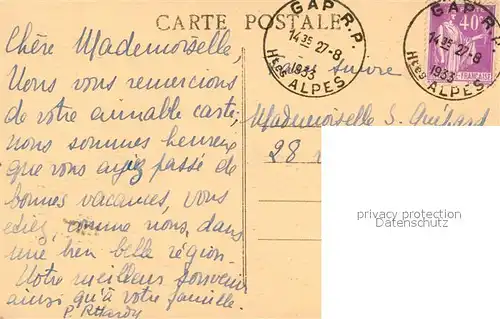 CARTE POSTALE
GAP R.P.
14 35 27-8
1933
Htes ALPES
GAP R.P.
14 35 27-8
1933
Htes ALPES
40c
FRANÇAISE
Chère Mademoiselle,
Nous vous remercions
de votre aimable carte;
nous sommes heureux
que vous ayez passé de
bonnes vacances, vous
etiez, comme nous, dans
une bien belle région.
Notre meilleur souvenir
ainsi qu'à votre famille.
P. Hardy
suivre
Mademoiselle S.
28
privacy protection
Datenschutz